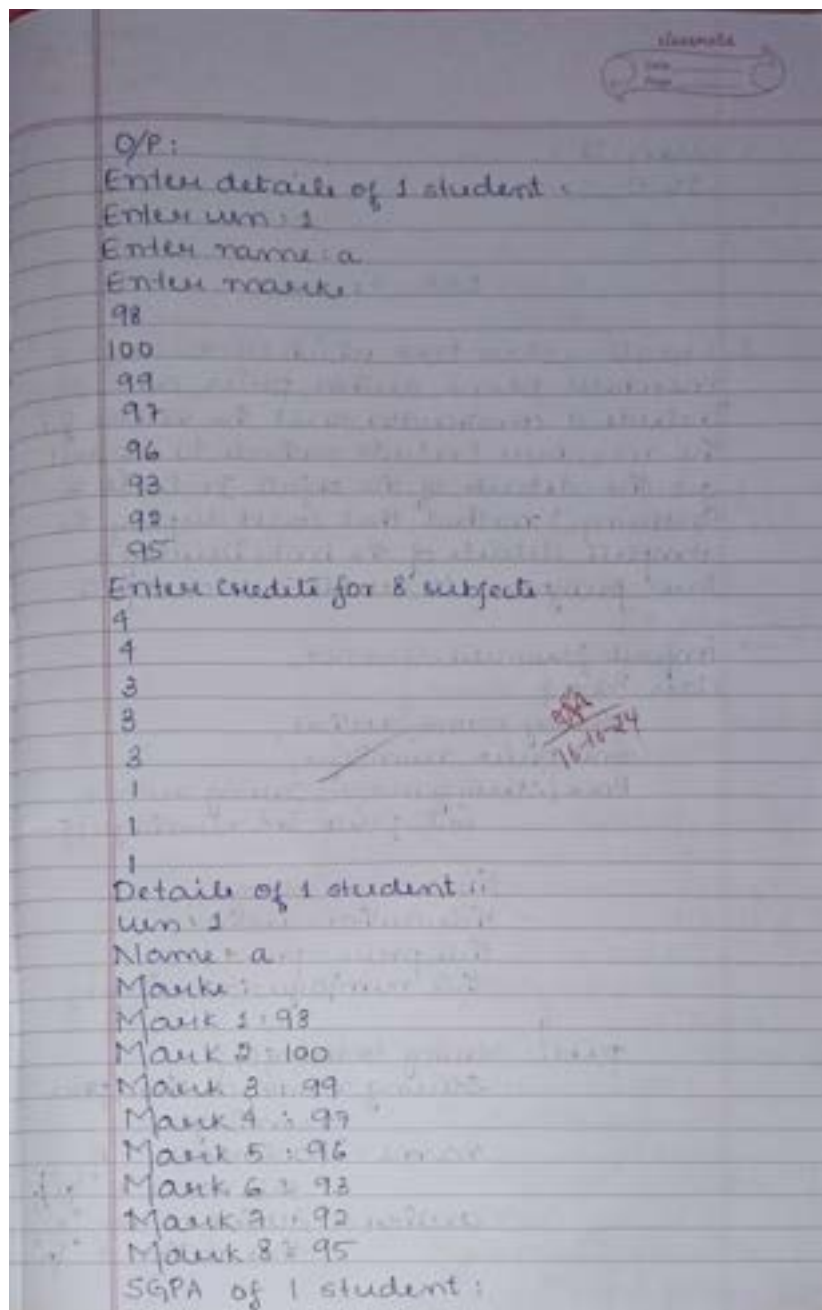 classmate
Date
Page
O/P:
Enter details of 1 student :
Enter usn : 1
Enter name : a
Enter marks :
98
100
99
97
96
93
92
95
Enter credits for 8 subjects
4
4
3
3
3
1
1
1
16-10-24
Details of 1 student :
usn : 1
Name : a
Marks :
Mark 1 : 98
Mark 2 : 100
Mark 3 : 99
Mark 4 : 97
Mark 5 : 96
Mark 6 : 93
Mark 7 : 92
Mark 8 : 95
SGPA of 1 student :